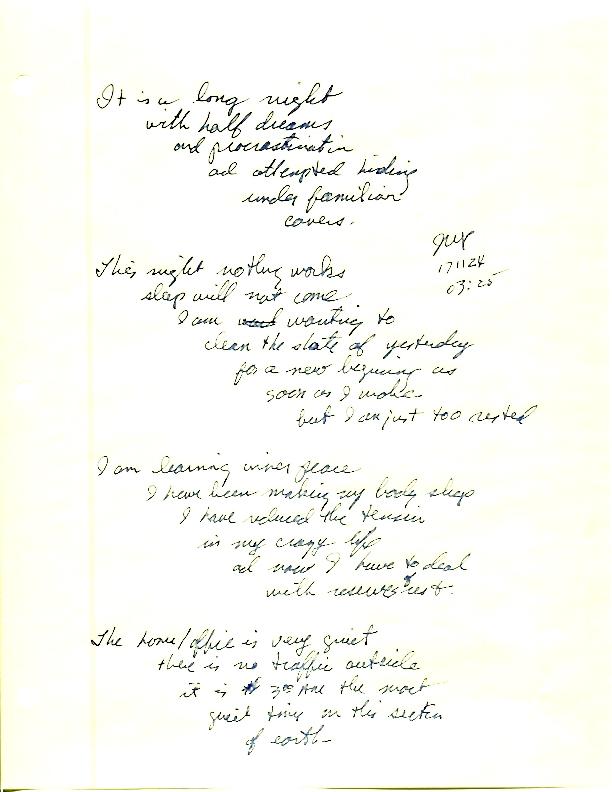 It is a long night
with half dreams
and procrastination
and attempted hiding
under familiar
covers.
171124
03:25
This night nothing works
sleep will not come
I am wanting to
clean the slate of yesterday
for a new begining as
soon as I wake
but I am just too rested
I am learning inner peace
I have been making my body sleep
I have reduced the tension
in my crazy life
and now I have to deal
with rest.
The home/office is very quiet
there is no traffic outside
it is 300 the most
quiet time on this section
of earth